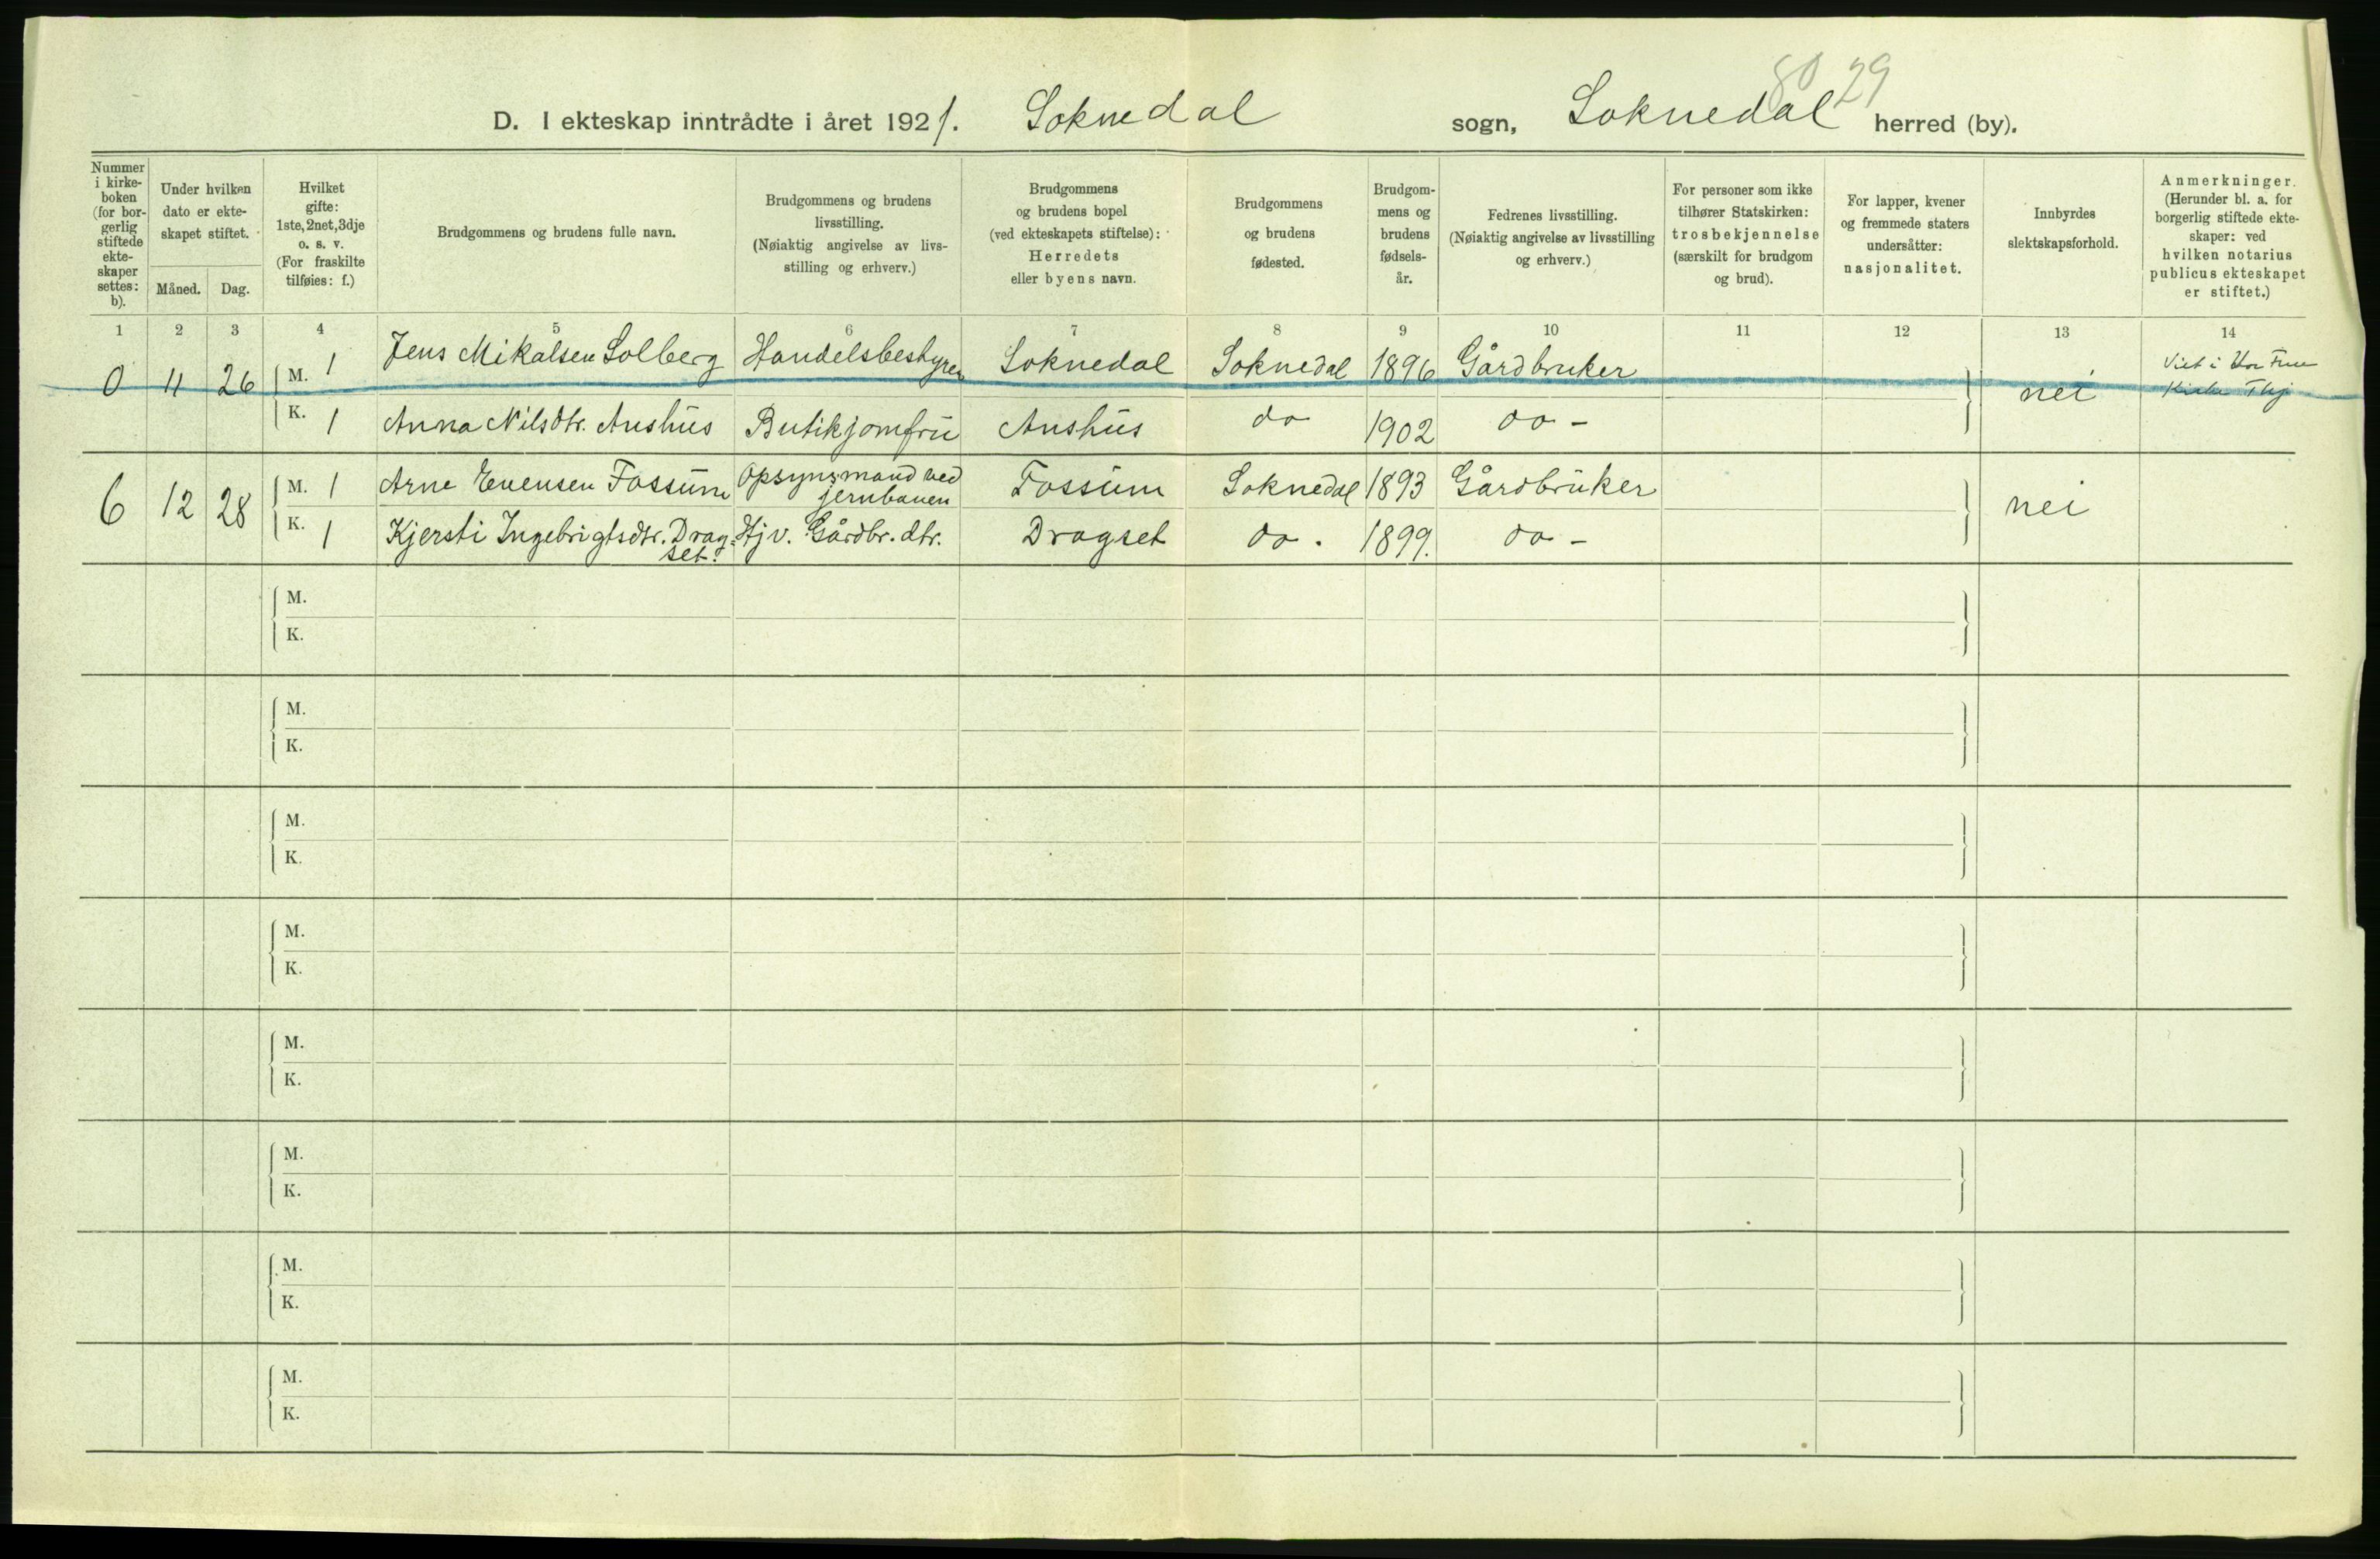 80 29
D. I ekteskap inntrådte i året 1921. Soknedal sogn, Soknedal herred (by).
Nummer i kirkeboken (for borgerlig stiftede ekteskaper settes: b).
Under hvilken dato er ekteskapet stiftet.
Måned. Dag.
Hvilket gifte: 1ste, 2net, 3dje o. s. v. (For fraskilte tilføies: f.)
Brudgommens og brudens fulle navn.
Brudgommens og brudens livsstilling. (Nøiaktig angivelse av livsstilling og erhverv.)
Brudgommens og brudens bopel (ved ekteskapets stiftelse): Herredets eller byens navn.
Brudgommens og brudens fødested.
Brudgommens og brudens fødselsår.
Fedrenes livsstilling. (Nøiaktig angivelse av livsstilling og erhverv.)
For personer som ikke tilhører Statskirken: trosbekjennelse (særskilt for brudgom og brud).
For lapper, kvener og fremmede staters undersåtter: nasjonalitet.
Innbyrdes slektskapsforhold.
Anmerkninger. (Herunder bl. a. for borgerlig stiftede ekteskaper: ved hvilken notarius publicus ekteskapet er stiftet.)
1 2 3 4 5 6 7 8 9 10 11 12 13 14
0 11 26 M. 1 Jens Mikalsen Solberg Handelsbestyrer Soknedal Soknedal 1896 Gårdbruker nei Viet i Vor Frue Kirke Thj
K. 1 Anna Nilsdtr. Aushus Butikjomfru Aushus do 1902 do -
6 12 28 M. 1 Arne Evensen Fossum Opsynsmand ved jernbanen Fossum Soknedal 1893 Gårdbruker nei
K. 1 Kjersti Ingebrigtsdtr. Dragset. Hjv. Gårdbr. dtr. Dragset do. 1899. do -
M.
K.
M.
K.
M.
K.
M.
K.
M.
K.
M.
K.
M.
K.
M.
K.